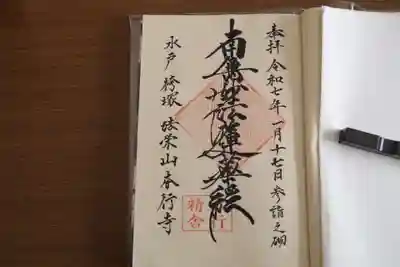 奉拝 令和七年一月十七日参詣之砌
南無妙法蓮華経
水戸 袴塚 栄山本行寺
行
精舎